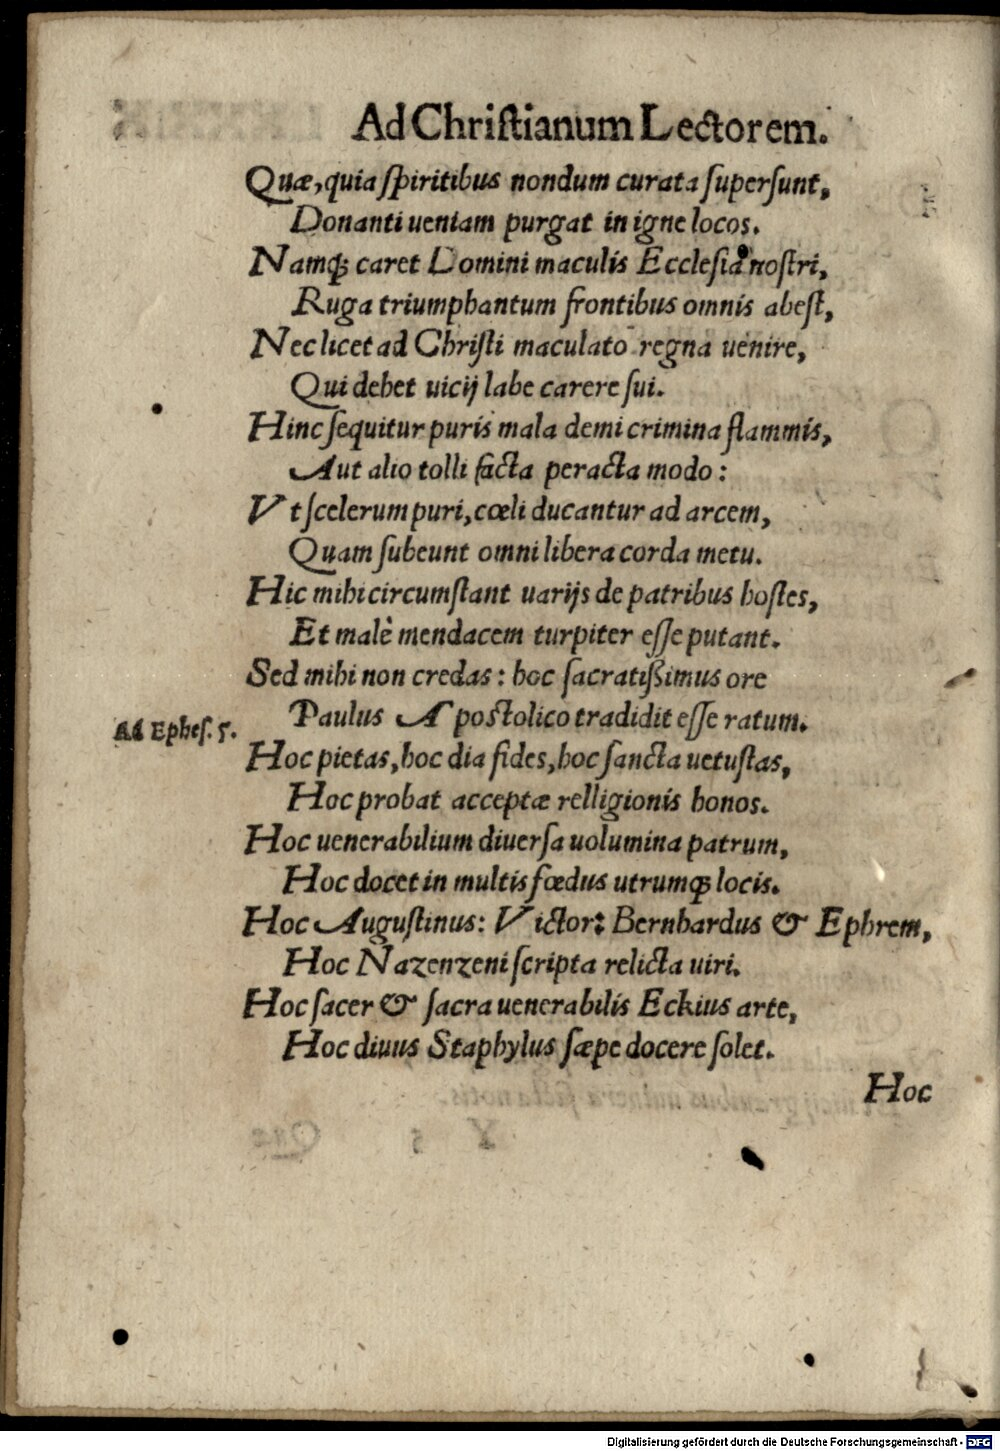 Ad Chriſtianum Lectorem.
Quæ, quia ſpiritibus nondum curata ſuperſunt,
Donanti ueniam purgat in igne locos.
Namq; caret Domini maculis Eccleſia noſtri,
Ruga triumphantum frontibus omnis abeſt,
Nec licet ad Chriſti maculato regna uenire,
Qui debet uicij labe carere ſui.
Hinc ſequitur puris mala demi crimina flammis,
Aut alio tolli facta peracta modo:
Vt ſcelerum puri, cœli ducantur ad arcem,
Quam ſubeunt omni libera corda metu.
Hic mihi circumſtant uarijs de patribus hoſtes,
Et malè mendacem turpiter eſſe putant.
Sed mihi non credas: hoc ſacratißimus ore
Paulus Apoſtolico tradidit eſſe ratum.
Ad Epheſ. 5.
Hoc pietas, hoc dia fides, hoc ſancta uetuſtas,
Hoc probat acceptæ relligionis honos.
Hoc uenerabilium diuerſa uolumina patrum,
Hoc docet in multis fœdus utrumq; locis.
Hoc Auguſtinus: Victor: Bernhardus & Ephrem,
Hoc Nazenzeni ſcripta relicta uiri.
Hoc ſacer & ſacra uenerabilis Eckius arte,
Hoc diuus Staphylus ſæpe docere ſolet.
Hoc
Digitalisierung gefördert durch die Deutsche Forschungsgemeinschaft - DFG